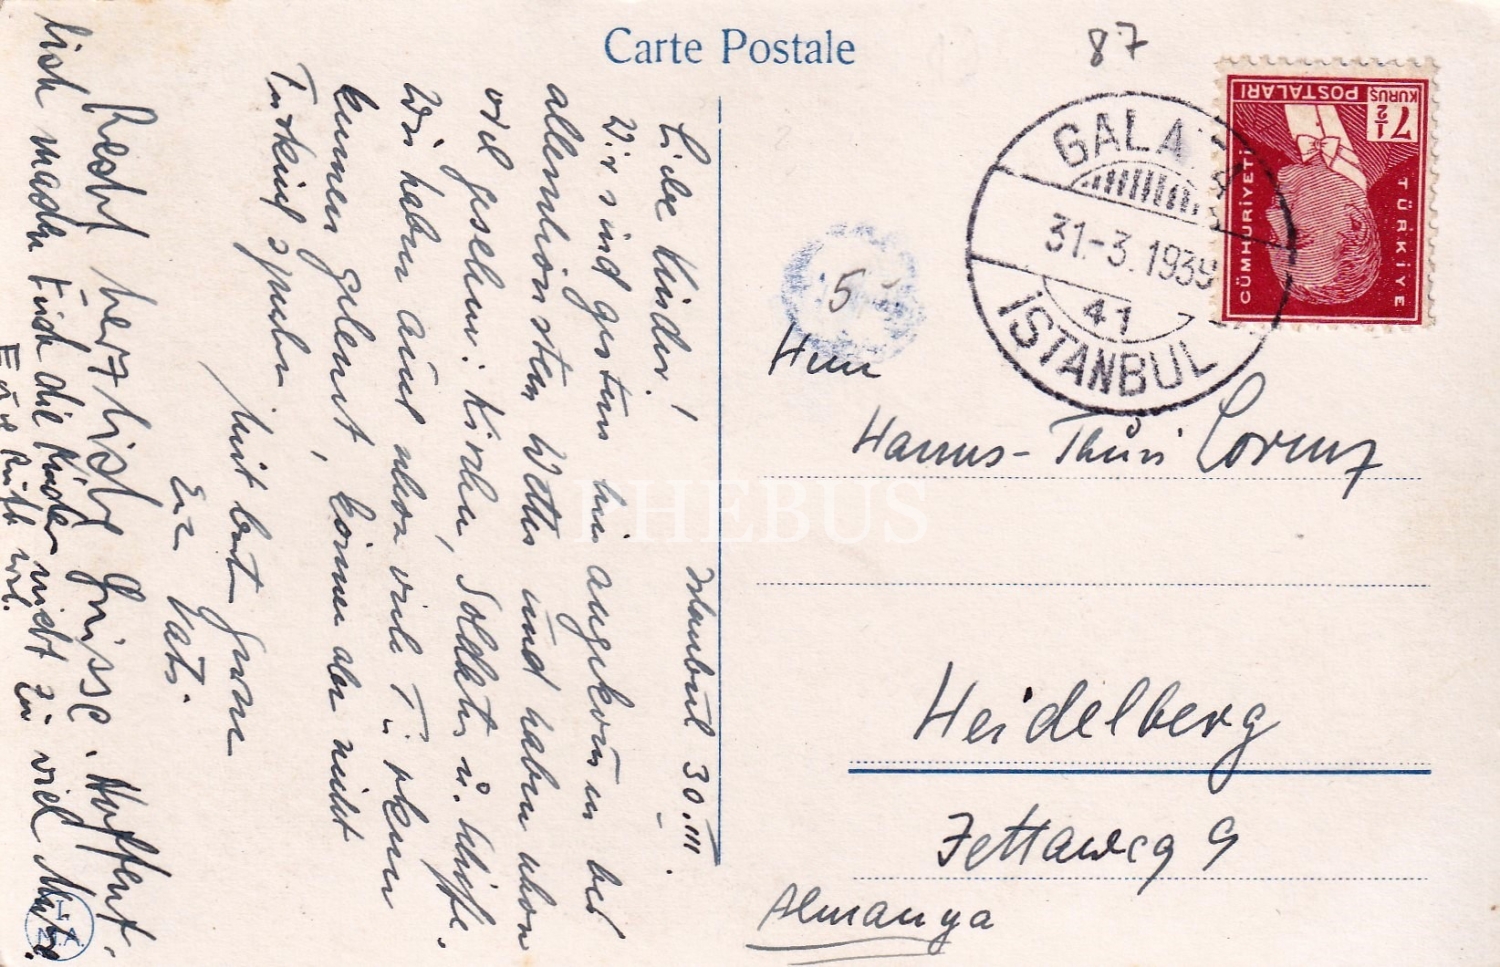 Carte Postale
87
7½
KURUŞ
POSTALARI
TÜRKİYE
CÜMHURİYETİ
GALATA
31-3.1939
41
İSTANBUL
5
PHEBUS
Herrn
Hanns- Lorenz
Heidelberg
9
Almanya
Istanbul 30.III.
Liebe Kinder!
Wir sind gestern hier angekommen bei
allerschönstem Wetter und haben schon
viel gesehen: Kirchen, Soldaten u. Schiffe.
Wir haben auch schon viele Türken
kennen gelernt, können aber nicht
Türkisch sprechen
Mit
Eur Vati.
Recht herzliche Grüsse. Hoffent-
lich machen Euch die Kinder nicht zu viel Mühe.
Eure Ruth